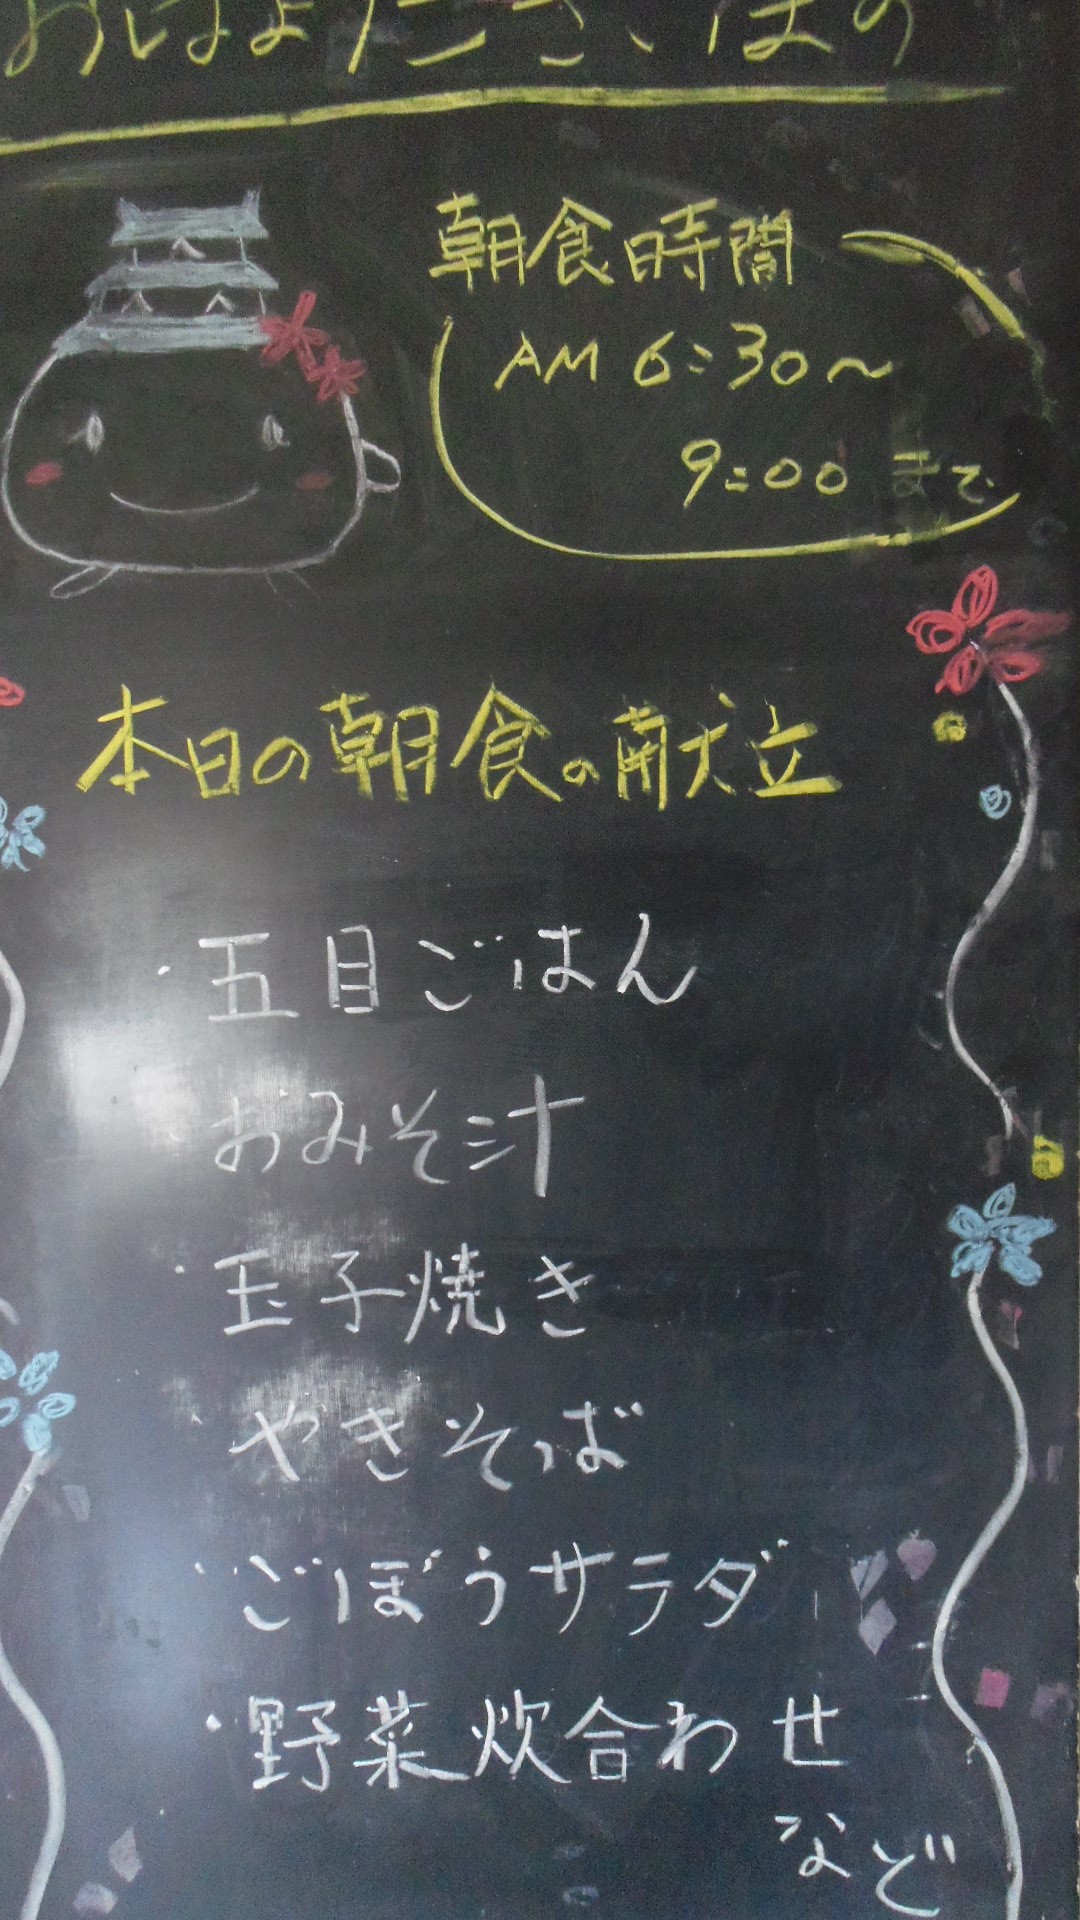 朝食時間
AM 6:30〜
9:00 まで
本日の朝食の献立
・五目ごはん
おみそ汁
・玉子焼き
・やきそば
・ごぼうサラダ
・野菜炊合わせ
など